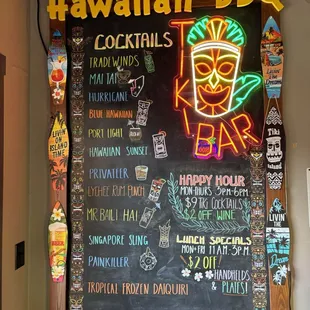 Hawaiian BBQ
COCKTAILS
TRADEWINDS
MAI TAI
HURRICANE
BLUE HAWAIIAN
PORT LIGHT
HAWAIIAN SUNSET
PRIVATEER
LYCHEE RUM PUNCH
MR BALI HAI
SINGAPORE SLING
PAINKILLER
TROPICAL FROZEN DAIQUIRI
TIKI
BAR
HAPPY HOUR
MON-THURS 3PM-6PM
$9 TIKI COCKTAILS
$2 OFF WINE
LUNCH SPECIALS
MON-FRI 11AM-3PM
$2 OFF
HANDHELDS
& PLATES!
LIVIN' ON
ISLAND
TIME
Tiki
LIVIN'
THE